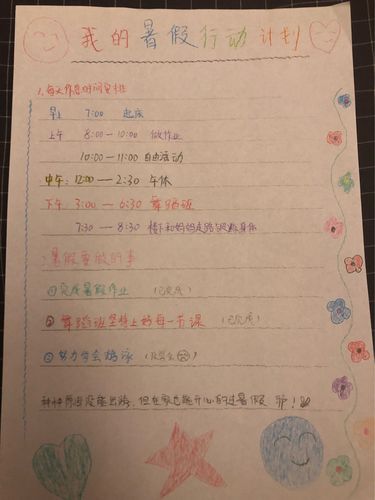 我的暑假行动计划
1.每天作息时间安排
早上 7:00 起床
上午 8:00—10:00 做作业
10:00—11:00 自由活动
中午:12:00—2:30 午休
下午 3:00—6:30 舞蹈班
7:30—8:30 楼下和妈妈走路锻炼身体
暑假要做的事
①完成暑假作业 (已完成)
②舞蹈班坚持上好每一节课 (已完成)
③努力学会游泳 (没学会)
种种原因没能出游,但在家也能开心的过暑假 耶!